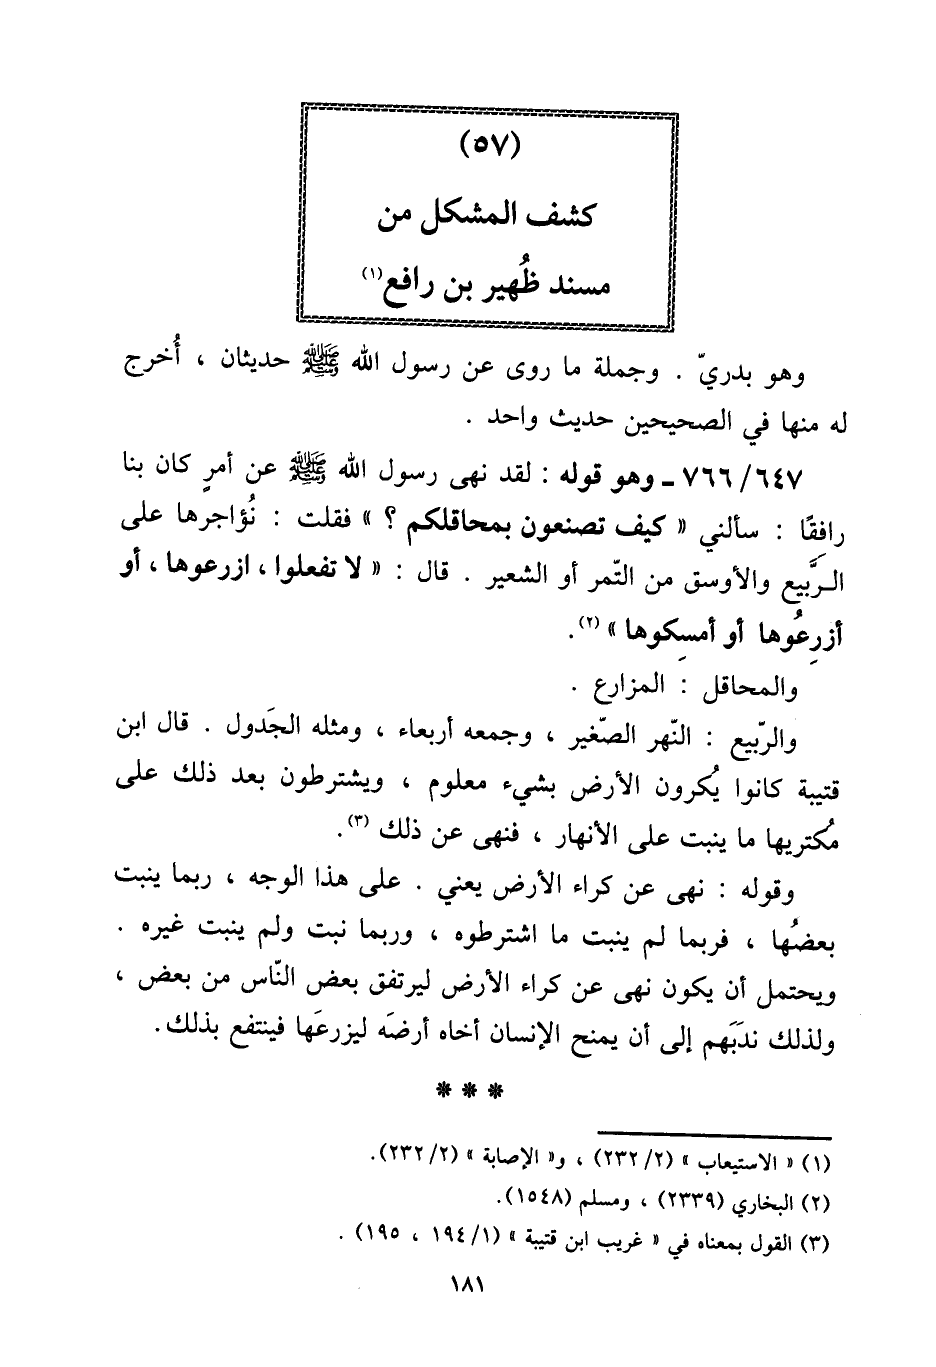 (٥٧)
كشف المشكل من
مسند ظُهير بن رافع(١)
وهو بدريّ . وجملة ما روى عن رسول الله ﷺ حديثان ، أُخرج
له منها في الصحيحين حديث واحد .
٦٤٧/ ٧٦٦ ـ وهو قوله : لقد نهى رسول الله ﷺ عن أمرٍ كان بنا
رافِقًا : سألني « كيف تصنعون بمحاقلكم ؟ » فقلت : نُؤاجرها على
الـرَّبيع والأوسق من التّمر أو الشعير . قال : « لا تفعلوا ، ازرعوها ، أو
أزرِعُوها أو أمسِكوها » (٢).
والمحاقل : المزارع .
والرّبيع : النّهر الصّغير ، وجمعه أربعاء ، ومثله الجَدول . قال ابن
قتيبة كانوا يُكرون الأرض بشيء معلوم ، ويشترطون بعد ذلك على
مُكتريها ما ينبت على الأنهار ، فنهى عن ذلك (٣).
وقوله : نهى عن كراء الأرض يعني . على هذا الوجه ، ربما ينبت
بعضُها ، فربما لم ينبت ما اشترطوه ، وربما نبت ولم ينبت غيره .
ويحتمل أن يكون نهى عن كراء الأرض ليرتفق بعض النّاس من بعض ،
ولذلك ندَبَهم إلى أن يمنح الإنسان أخاه أرضَه ليزرعَها فينتفع بذلك.
* * *
(١) « الاستيعاب » (٢/ ٢٣٢) ، و« الإصابة » (٢/ ٢٣٢).
(٢) البخاري (٢٣٣٩) ، ومسلم (١٥٤٨).
(٣) القول بمعناه في « غريب ابن قتيبة » (١/ ١٩٤ ، ١٩٥) .
١٨١